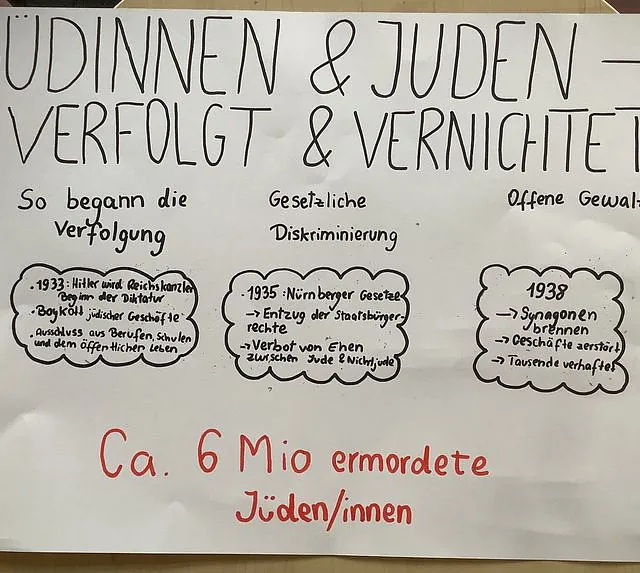 ÜDINNEN & JUDEN –
VERFOLGT & VERNICHTET
So begann die
Verfolgung
Gesetzliche
Diskriminierung
Offene Gewal
. 1933: Hitler wird Reichskanzler
Beginn der Diktatur
. Boykott jüdischer Geschäfte
. Ausschluss aus Berufen, Schulen
und dem öffentlichen Leben
. 1935: Nürnberger Gesetze
→ Entzug der Staatsbürger-
rechte
→ Verbot von Ehen
zwischen Jude & Nichtjude
1938
→ Synagonen
brennen
→ Geschäfte zerstört
→ Tausende verhaftet
Ca. 6 Mio ermordete
Jüden/innen